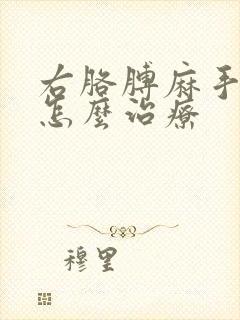 右胳膊麻手
怎麼治療
穆里